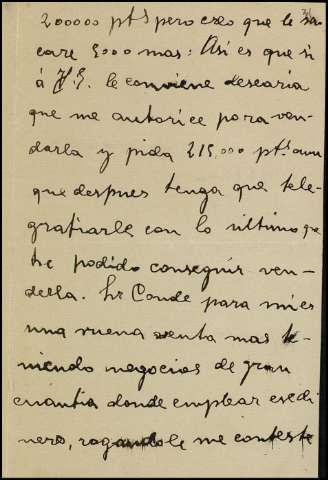 200000 pts pero creo que le sa-
care 5000 mas: Así es que si
á V.E. le conviene desearia
que me autorice para ven-
darla y pida 215.000 pts aun
que despues tenga que tele-
grafiarle con lo ultimo que
he podido conseguir ven-
della. Sr Conde para mi es
una vuena venta mas te-
niendo negocios de gran
cuantia donde emplear ese di-
nero, rogandole me conteste